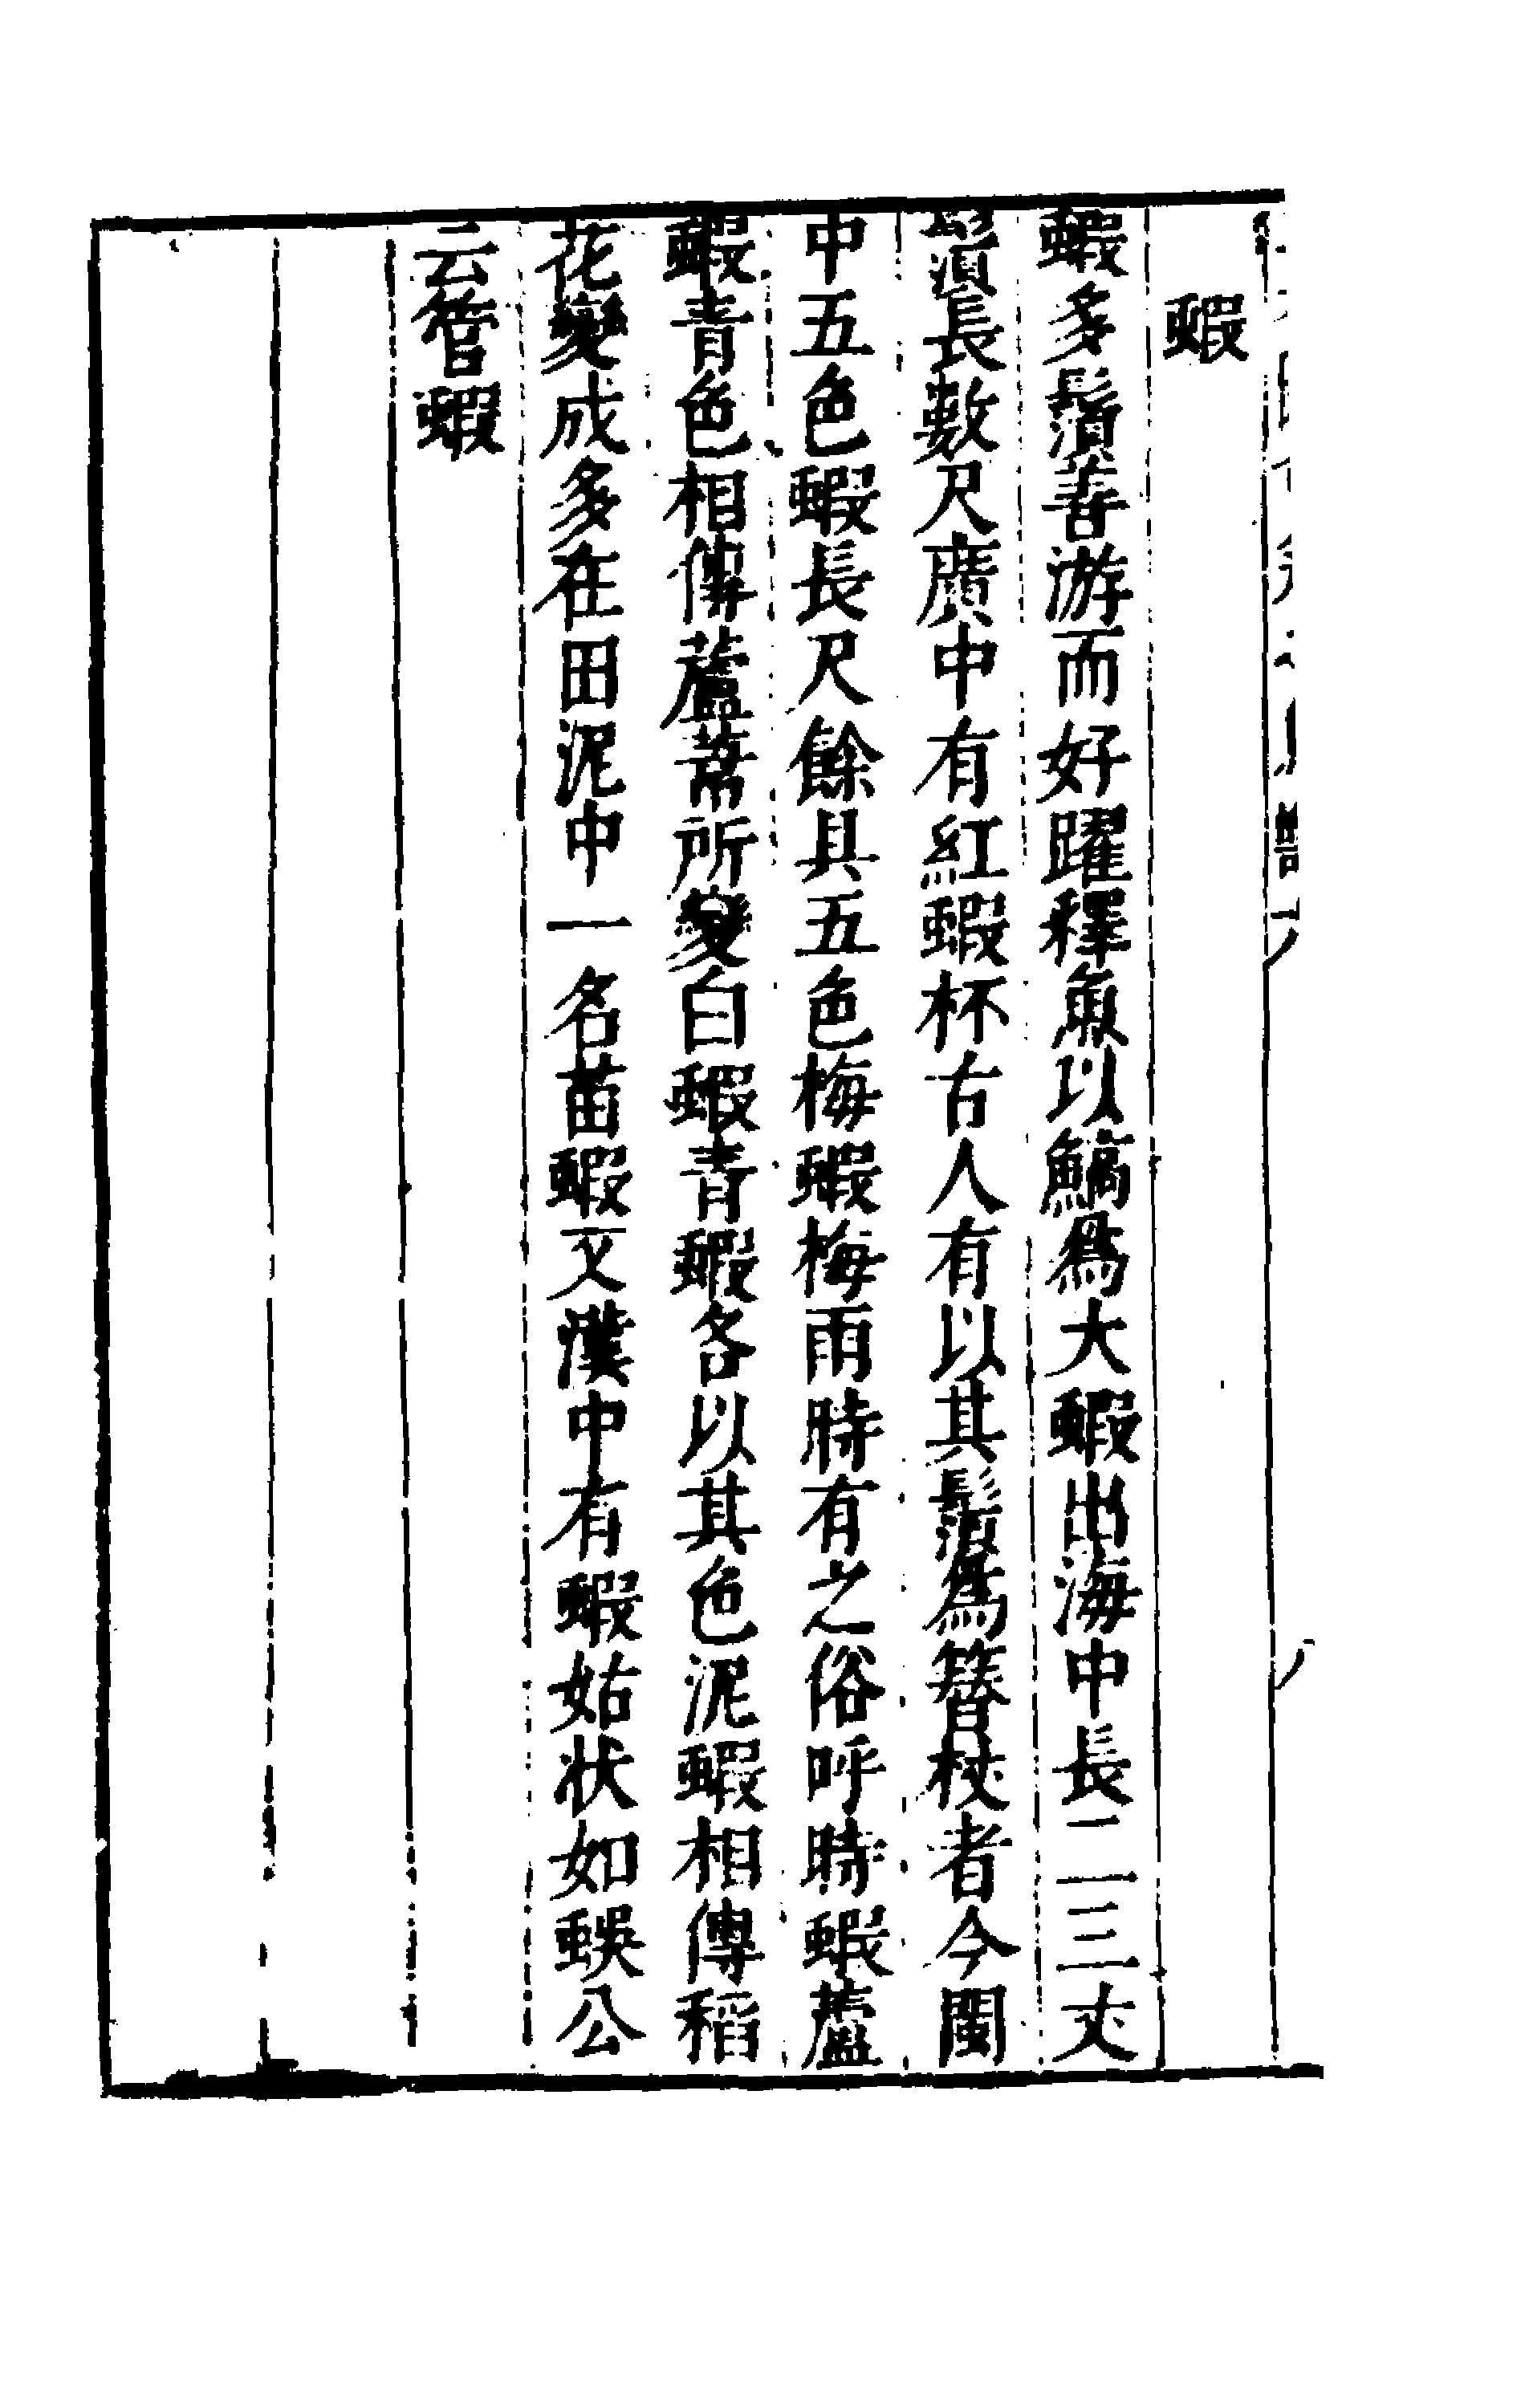 蝦
蝦多鬚善游而好躍釋魚以鰝爲大蝦出海中長二三丈
鬚長數尺廣中有紅蝦杯古人有以其鬚爲簪杖者今閩
中五色蝦長尺餘具五色梅蝦梅雨時有之俗呼時蝦蘆
蝦青色相傳蘆葦所變白蝦青蝦各以其色泥蝦相傳稻
花變成多在田泥中一名苗蝦又漢中有蝦姑狀如蜈公
云管蝦